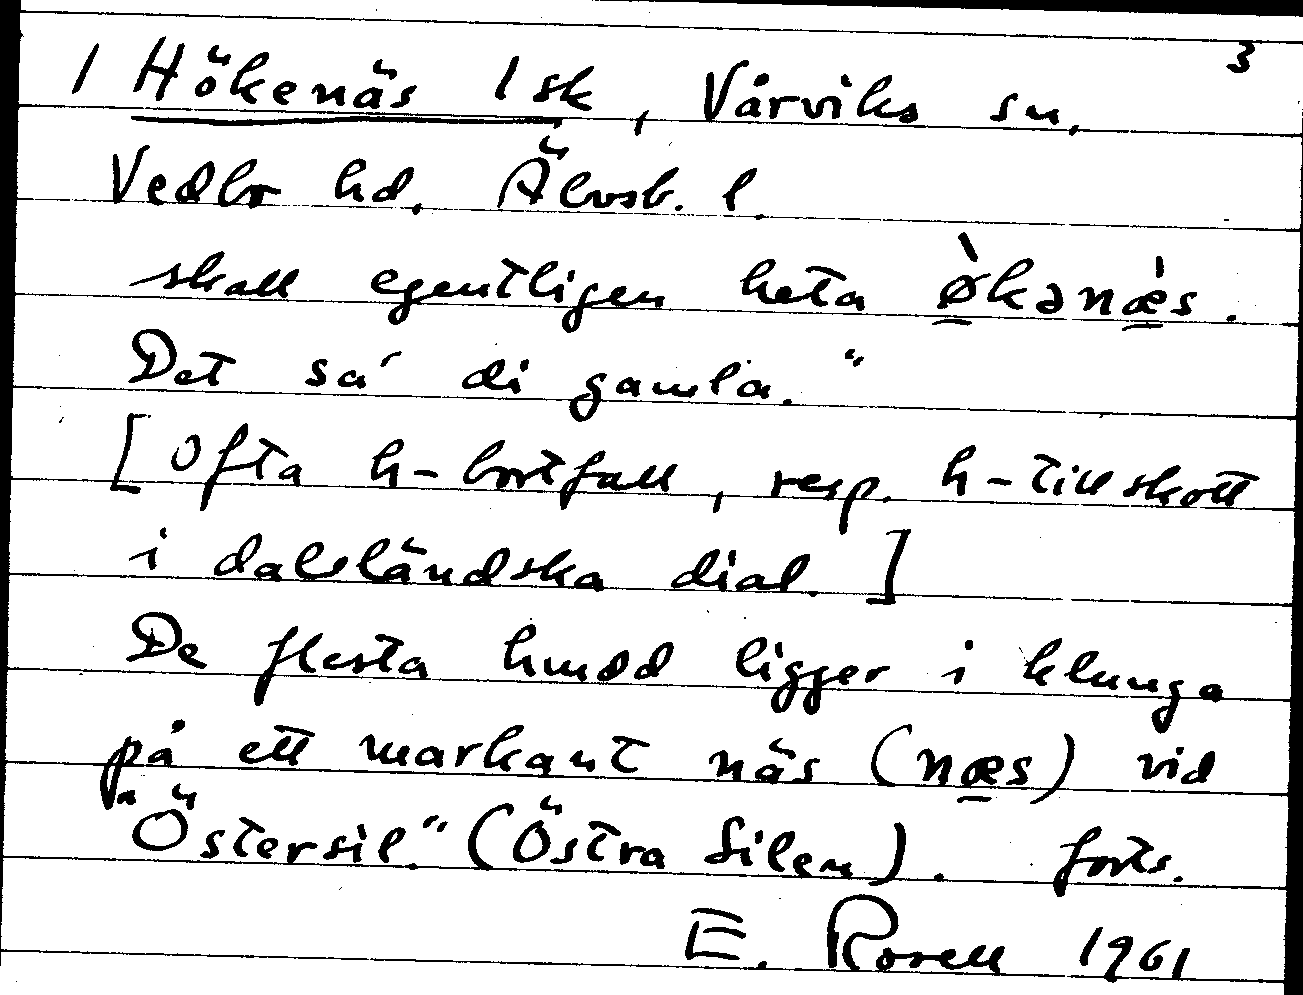 3
1 Hökenäs 1 sk, Vårviks sn,
Vedbo hd. Älvsb. l.
skall egentligen heta ø̀kənæ̀s.
Det sa' di gamla."
[Ofta h-bortfall, resp. h-tillskott
i dalsländska dial.]
De flesta hmdd ligger i klunga
på ett markant näs (næs) vid
"Östersil." (Östra Silen). forts.
E. Rosell 1961